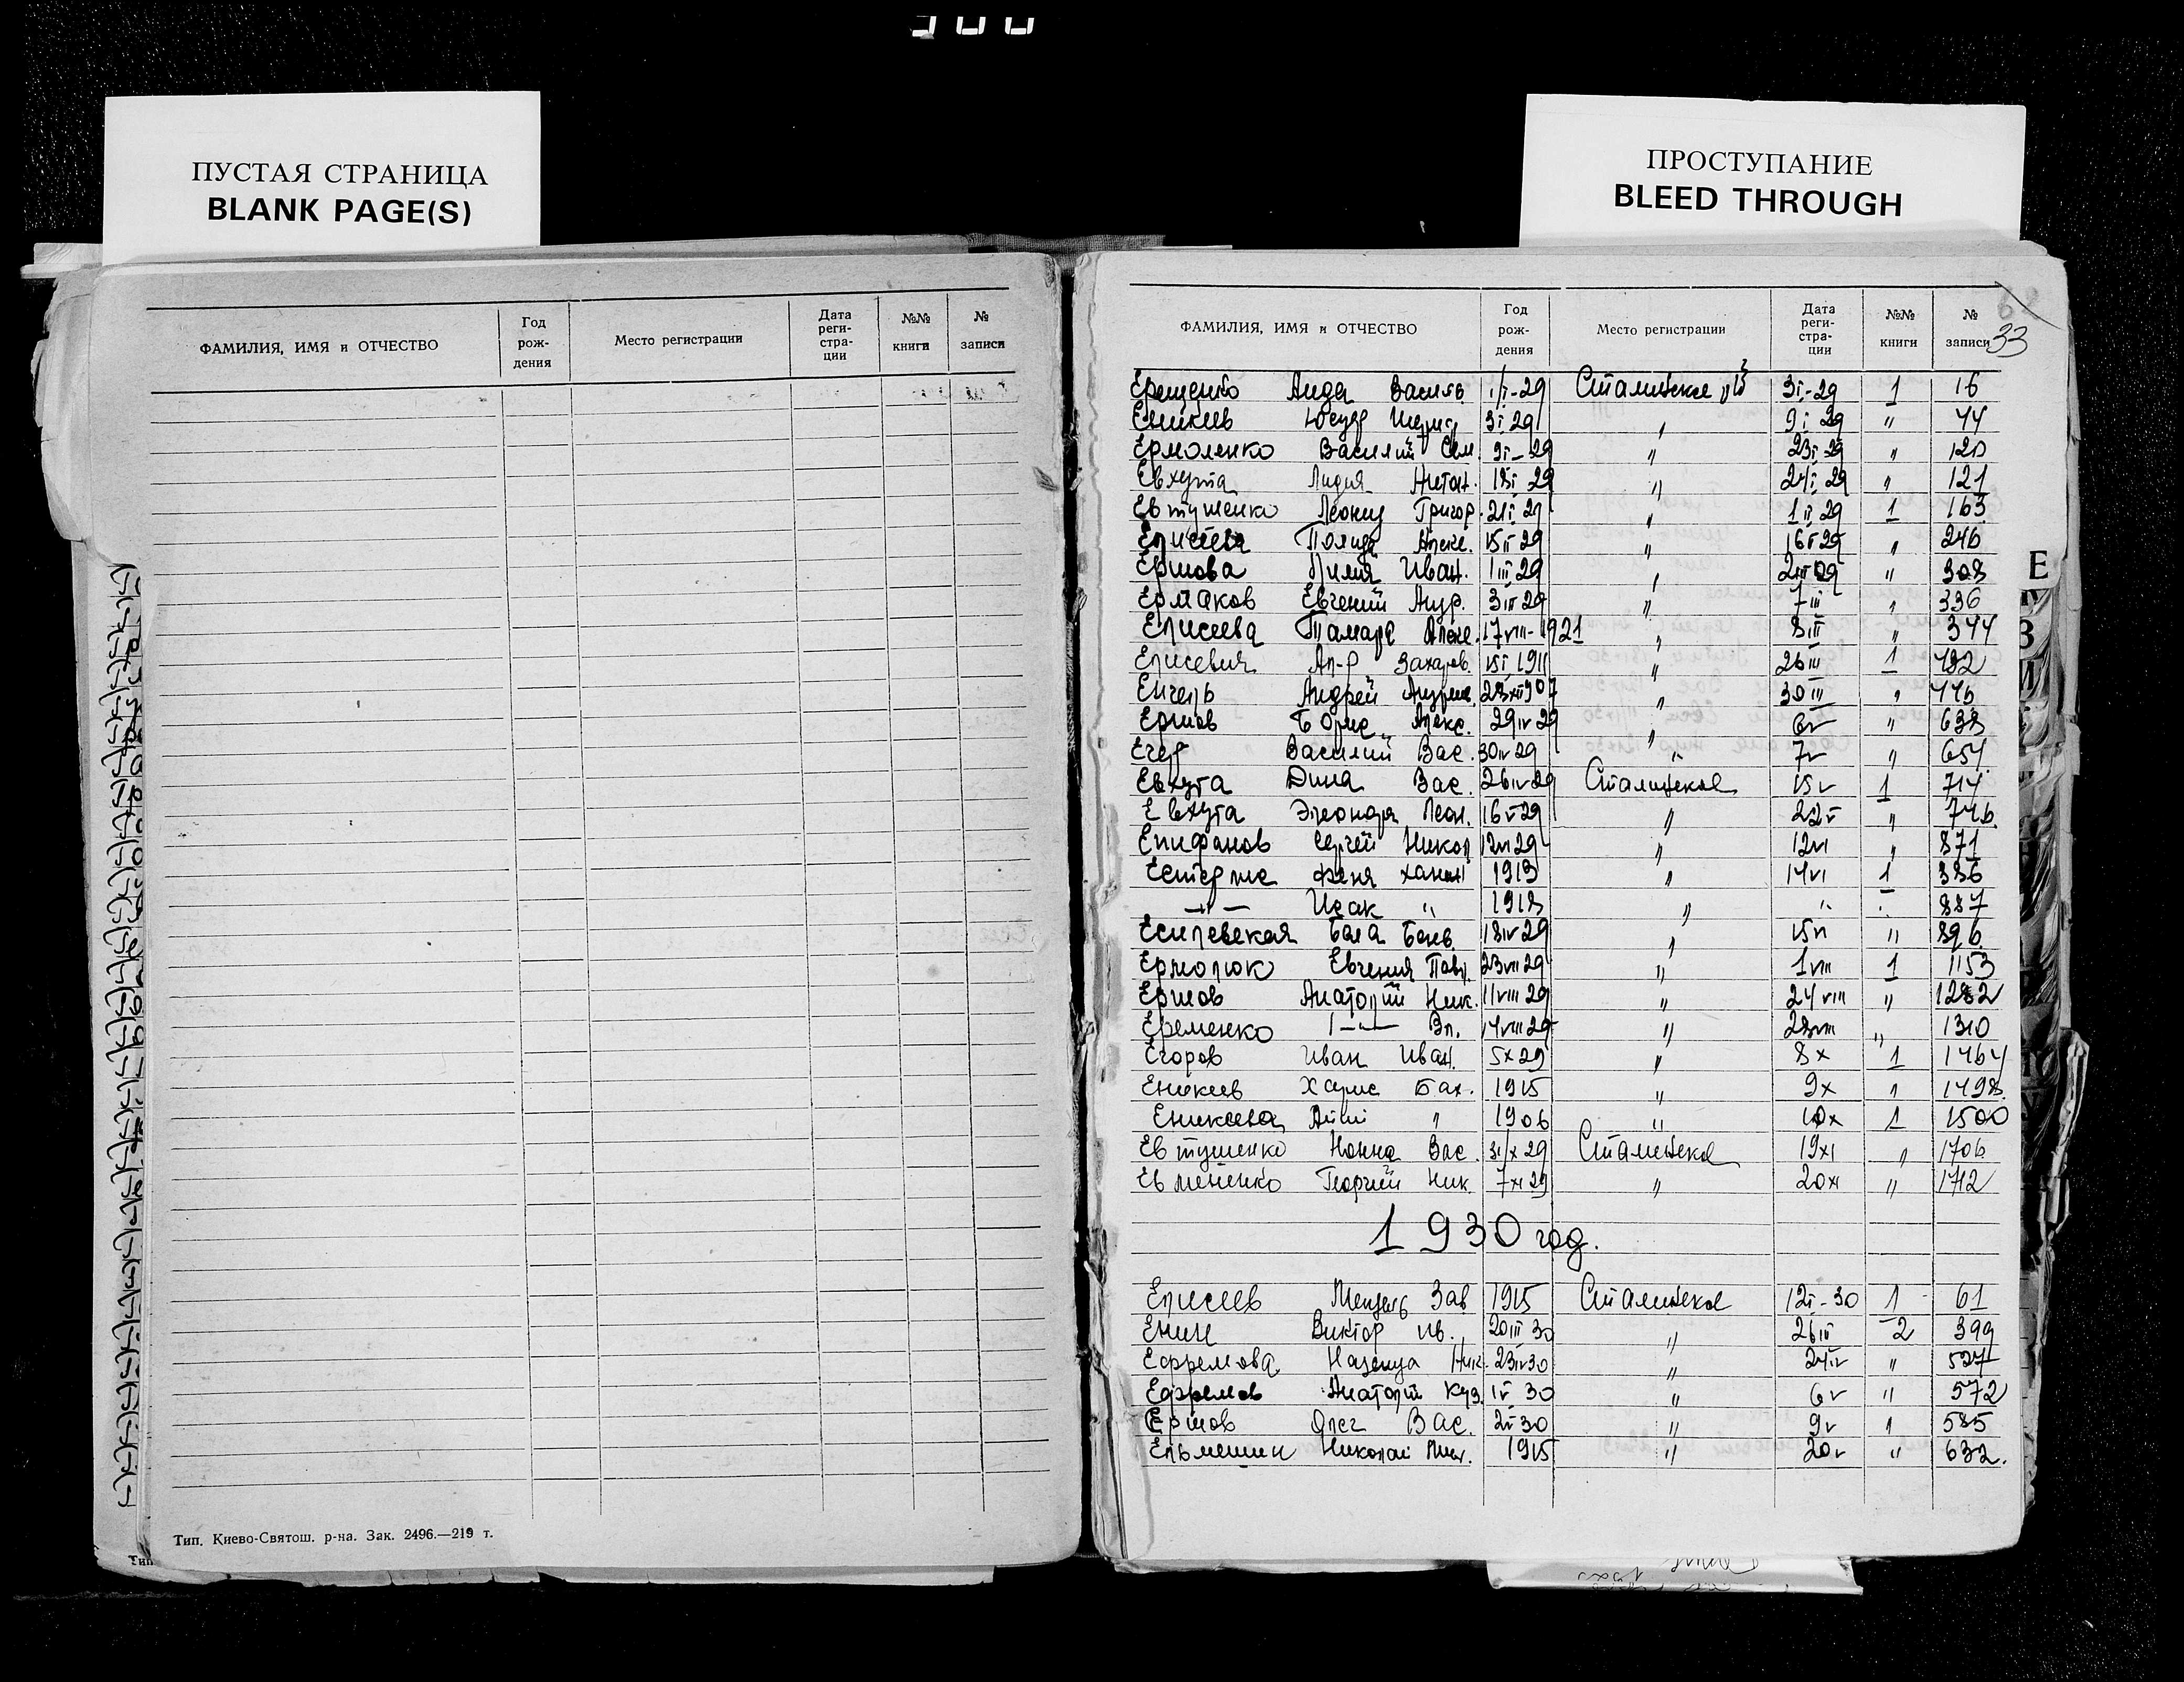 ПУСТАЯ СТРАНИЦА
BLANK PAGE(S)
ПРОСТУПАНИЕ
BLEED THROUGH
ФАМИЛИЯ, ИМЯ и ОТЧЕСТВО Год рож- дения Место регистрации Дата реги- стра- ции №№ книги № записи
Тип. Киево-Святош. р-на. Зак. 2496.—219 т.
ФАМИЛИЯ, ИМЯ и ОТЧЕСТВО Год рож- дения Место регистрации Дата реги- стра- ции №№ книги № записи
33
Ерещенко Аида Василь. 1/I-29 Сталинское 3I-29 1 16
Еникеев Юсуф 3I 29 " 9I 29 " 44
Ермоленко Василий Сем. 9I-29 " 23I 29 " 120
Евхута Лидия Антон. 18I 29 " 24I 29 " 121
Евтушенко Леонид Григор. 21I 29 " 1II 29 1 163
Елисеева Алекс. 15II 29 " 29 " 246
Ершова Лилия Иван. 1III 29 " 29 " 308
Ермаков Евгений Андр. 3III 29 " 7III " 336
Елисеева Тамара Алекс. 17VIII-1921 " 8III " 344
Елисевич Ал-р Захаров. 15I 1911 " 26III 1
Енгель Андрей 28XII 907 " 30III " 446
Ершов Борис Алекс. 29IV 29 " 6V " 638
Егер Василий Вас. 30IV 29 " 7V " 654
Евхута Дина Вас. 26IV 29 Сталинское 15V 1 714
Евхута Элеонора Леон. 16V 29 " 22V " 746
Епифанов Сергей Никол 12VI 29 " 12VI " 871
Феня 1913 " 14VI 1 886
—"— Исак " 1918 " " " 887
Есилевская 18IV 29 " 15VI " 896
Ермолюк Евгения Павл. 23VII 29 " 1VIII 1 1153
Ершов Анатолий Ник. 11VIII 29 " 24VIII " 1282
Еременко —"— Вл. 14VIII 29 " 28VIII " 1310
Егоров Иван Иван. 5X 29 " 8X 1 1464
Еникеев Харис Бах. 1915 " 9X " 1498
Еникеева " 1906 " 10X 1 1500
Евтушенко Нонна Вас. 31/X 29 Сталинское 19XI " 1706
Евмененко Георгий Ник. 7XI 29 " 20XI " 1712
1930 год.
Елисеев 1915 Сталинское 12I-30 1 61
Енин Виктор Ив. 20III 30 " 26III 2 399
Ефремова Надежда Ник. 23IV 30 " 24IV " 527
Ефремов Анатолий Куз. 1V 30 " 6V " 572
Ершов Олег Вас. 2V 30 " 9V " 585
Ельмешин Николай 1915 " 20V " 632.
Е